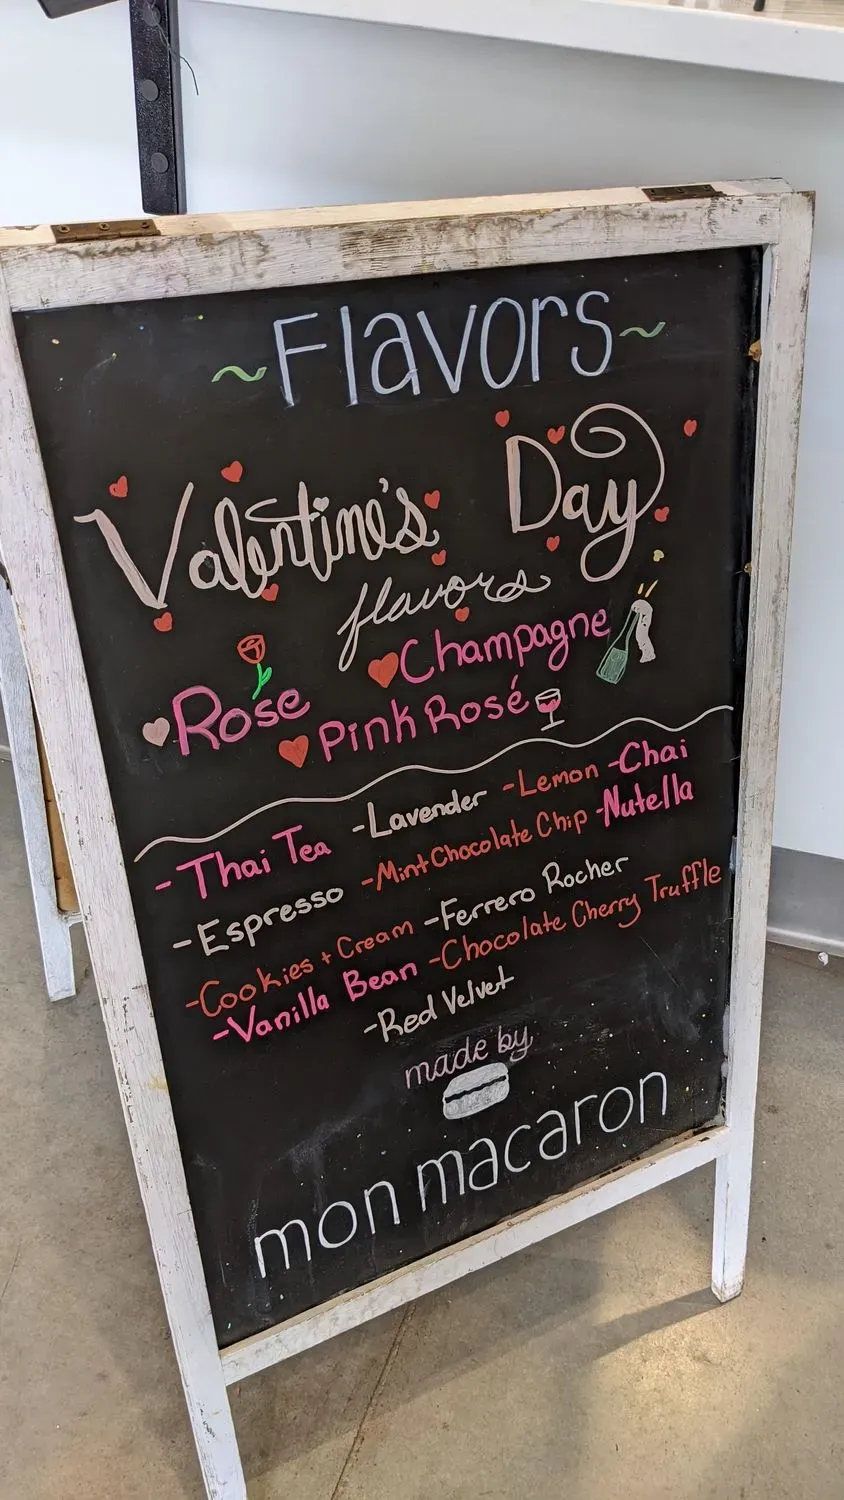 ~Flavors~
Valentine's Day
flavors
Rose Champagne
Pink Rosé
-Thai Tea -Lavender -Lemon -Chai
-Espresso -Mint Chocolate Chip -Nutella
-Cookies + Cream -Ferrero Rocher
-Vanilla Bean -Chocolate Cherry Truffle
-Red Velvet
made by
mon macaron